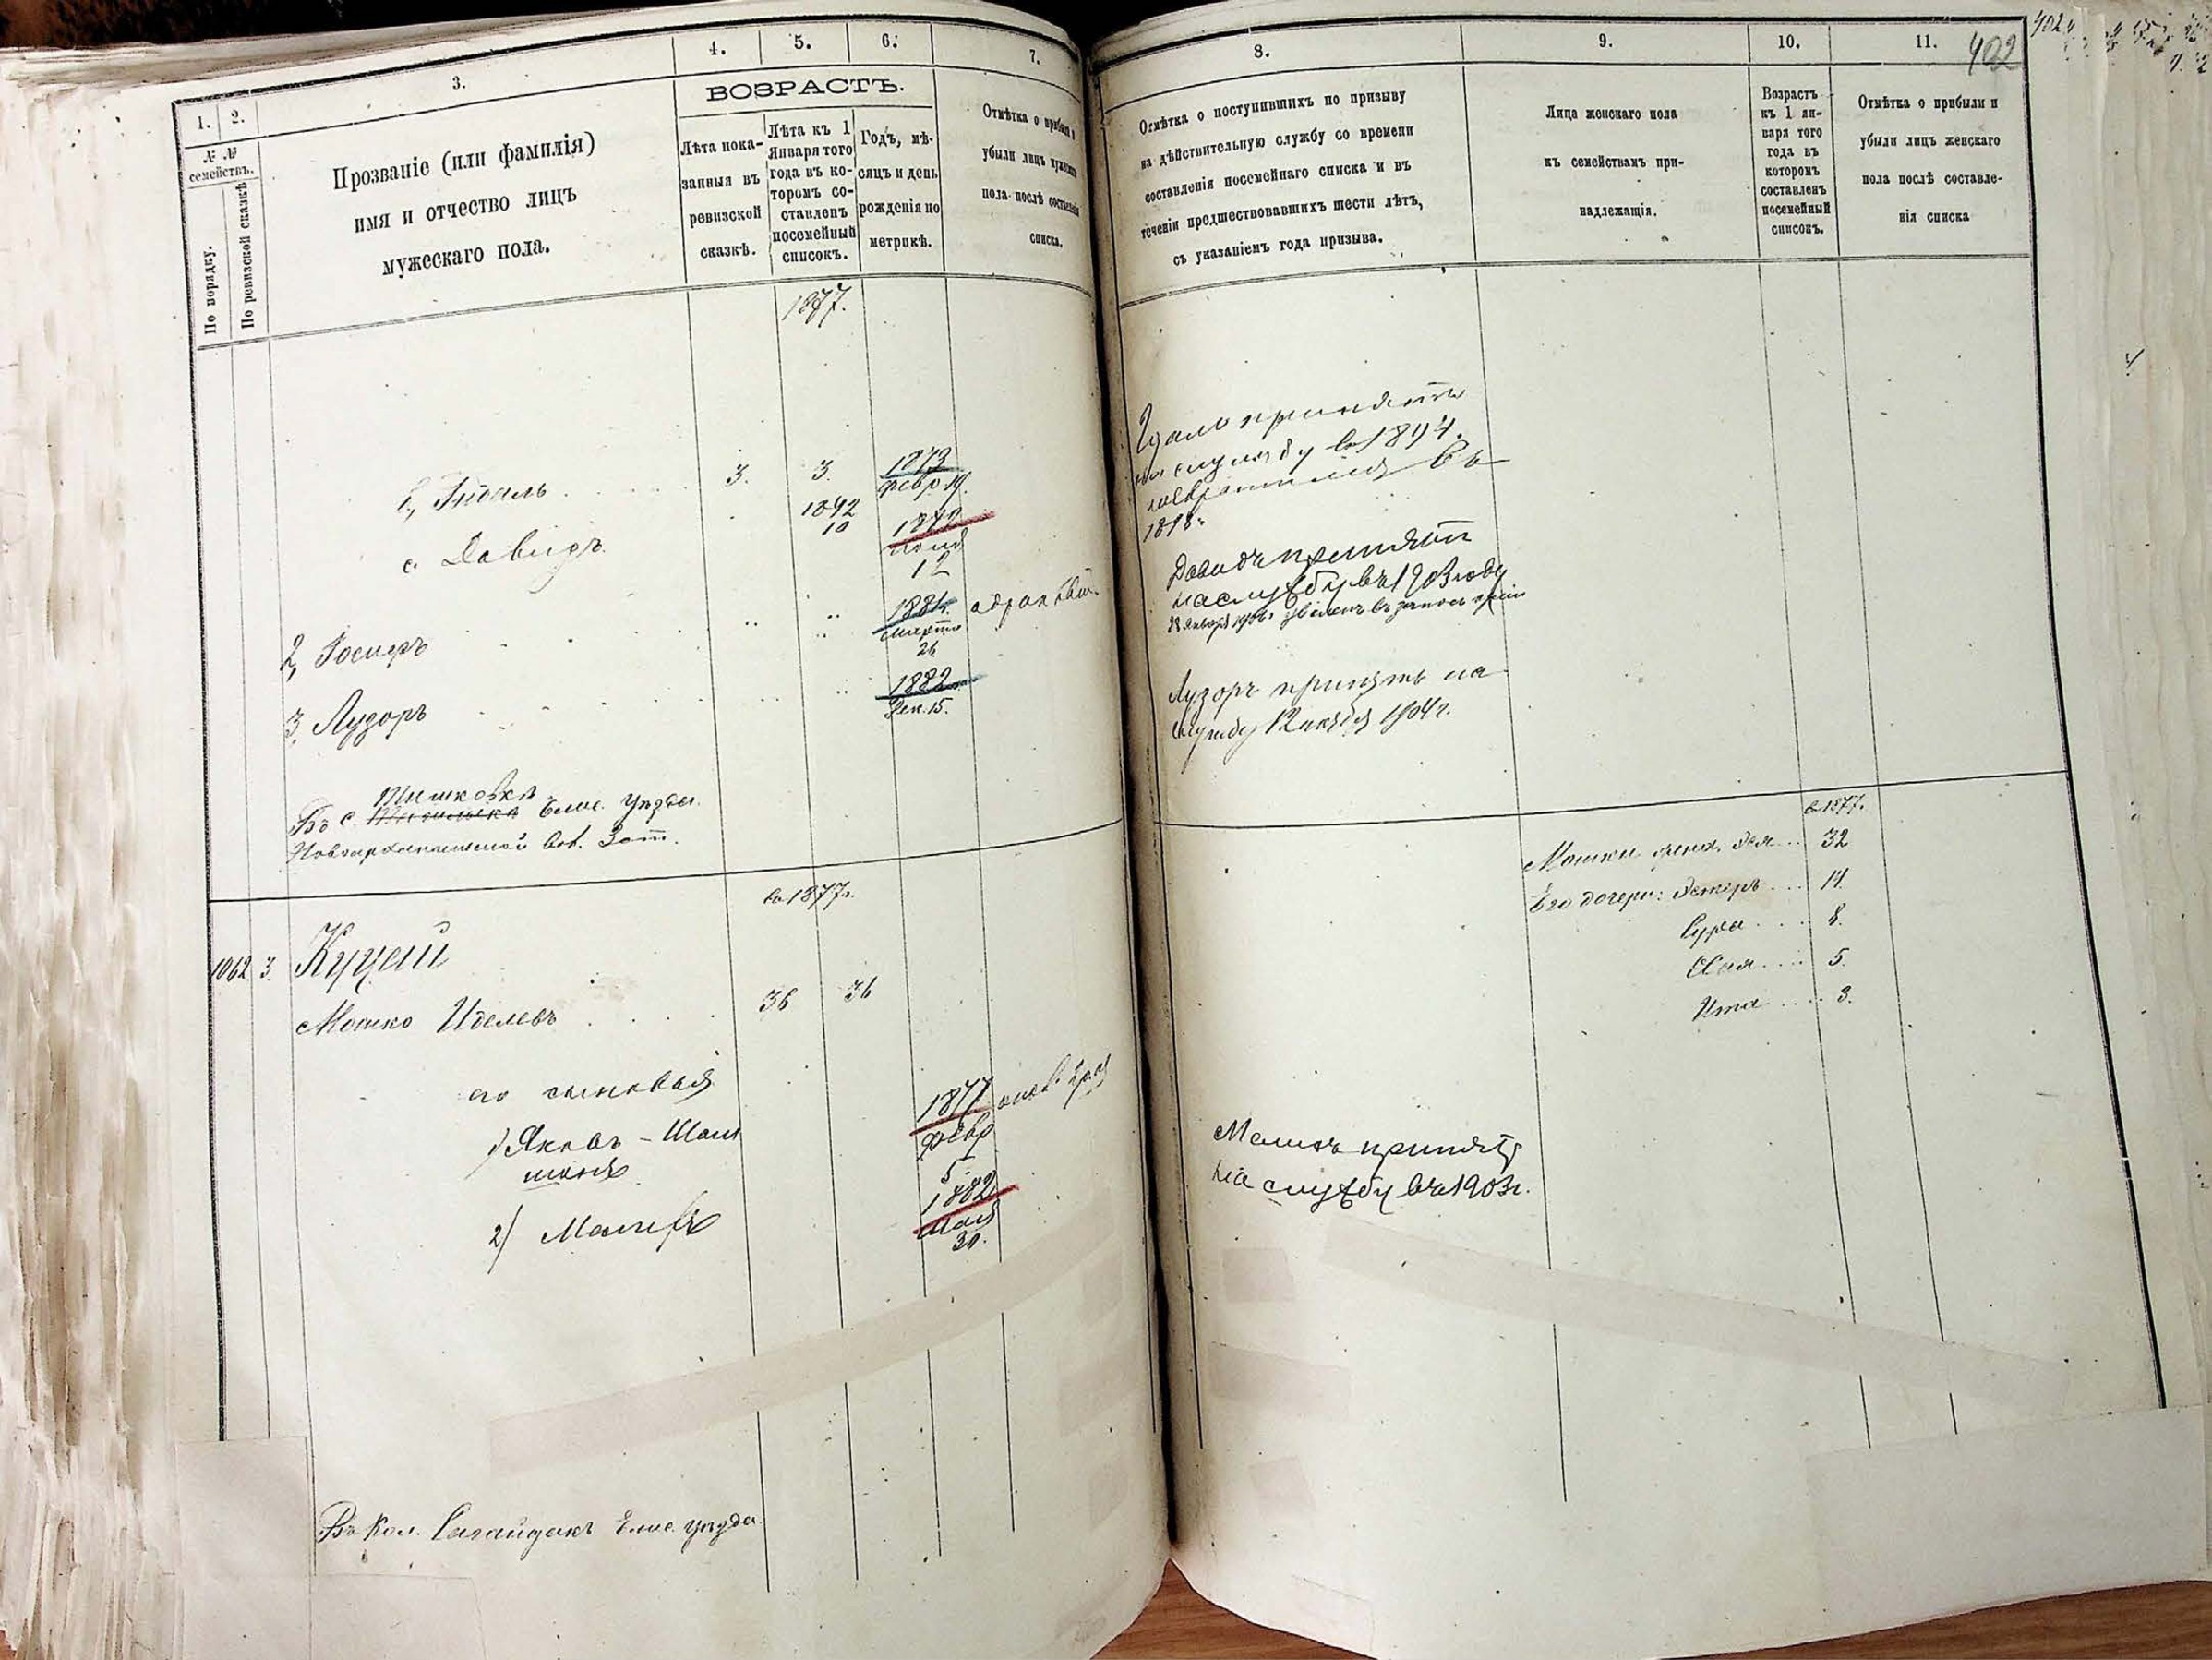 402
1. 2. 3. 4. 5. 6. 7.
№ №
семействъ.
По порядку.
По ревизской сказкѣ
Прозваніе (или фамилія)
имя и отчество лицъ
мужескаго пола.
ВОЗРАСТЪ.
Лѣта пока-
занныя въ
ревизской
сказкѣ.
Лѣта къ 1
Января того
года въ ко-
торомъ со-
ставленъ
посемейный
списокъ.
Годъ, мѣ-
сяцъ и день
рожденія по
метрикѣ.
Отмѣтка о прибыли и
убыли лицъ мужескаго
пола послѣ составленія
списка.
1877.
3. 3. 1873
февр. 19.
с. Давидъ
12
2, Іосифъ
1881.
26
3, Лузоръ
1882
Дек. 15.
Въ с. Тишковка Елис. уѣзда.
въ 1877 г.
1062 3. Куцый
Мошко Иделевъ 36 36
его сыновья
1) Яковъ - Шли
1877
февр
5
2)
1882
мая
30.
Въ кол. Сагайдакъ Елис. уѣзда
8. 9. 10. 11. 402
Отмѣтка о поступившихъ по призыву
на дѣйствительную службу со времени
составленія посемейнаго списка и въ
теченіи предшествовавшихъ шести лѣтъ,
съ указаніемъ года призыва.
Лица женскаго пола
къ семействамъ при-
надлежащія.
Возрастъ
къ 1 ян-
варя того
года въ
которомъ
составленъ
посемейный
списокъ.
Отмѣтка о прибыли и
убыли лицъ женскаго
пола послѣ составле-
нія списка
принятъ
на службу въ 1894.
возвратился въ
1898 г.
Давидъ принятъ
на службу въ 1903 году
Лузоръ принятъ на
службу 12 1904 г.
в 1877.
Мошки жена 32
Его дочери: Эстеръ 14
Сура 8.
Хая 5.
Ита 3.
принятъ
на службу въ 1903 г.